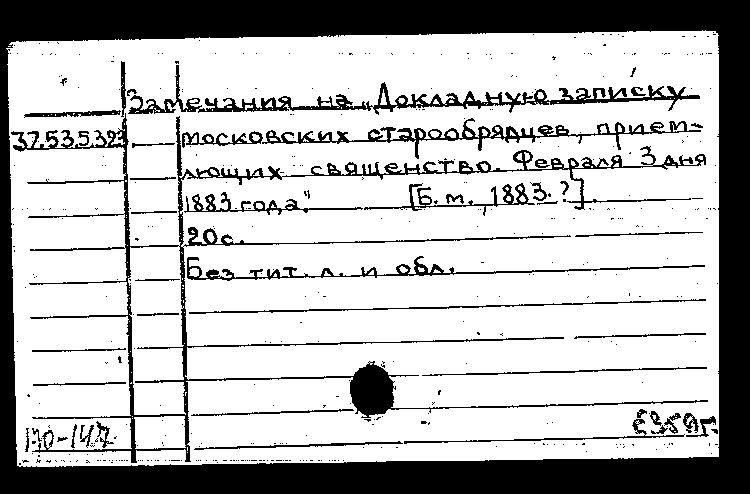 Замечания на „Докладную записку
37.53.5.323. московских старообрядцев, прием-
лющих священство. Февраля 3 дня
1883 года." [Б. м., 1883.?].
20 с.
Без тит. л. и обл.
170-147